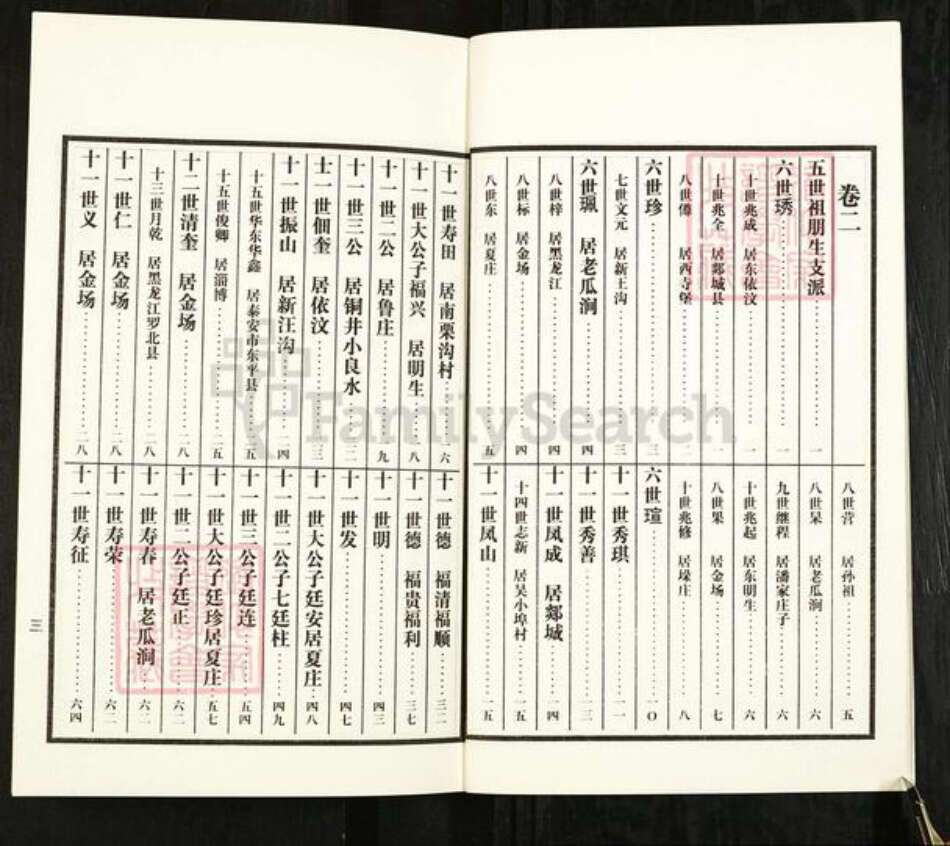 卷二
五世祖朋生支派 一
六世琇 一
十世兆成 居东依汶 一
十世兆全 居郯城县 二
八世傅 居西寺堡 二
六世珍
七世文元 居新王沟 三
六世珮 居老瓜涧 四
八世梓 居黑龙江 四
八世标 居金场 四
八世东 居夏庄 五
八世营 居孙祖 五
八世杲 居老瓜涧 六
九世继程 居潘家庄子 六
十世兆起 居东明生 六
八世果 居金场 七
十世兆修 居垛庄 八
六世瑄 一〇
十一世秀琪 一一
十一世秀善 一三
十一世凤成 居郯城 一四
十四世志新 居吴小埠村 一五
十一世凤山 一五
十一世寿田 居南栗沟村 一六
十一世大公子福兴 居明生 一八
十一世二公 居鲁庄 一九
十一世三公 居铜井小良水 二二
十一世佃奎 居依汶 二三
十一世振山 居新汪沟 二四
十五世华东华鑫 居泰安市东平县 二五
十五世俊卿 居淄博 二五
十二世清奎 居金场 二八
十三世月乾 居黑龙江罗北县 二八
十一世仁 居金场 二八
十一世义 居金场 二八
十一世德 福清福顺 三二
十一世德 福贵福利 三七
十一世明 四三
十一世发 四七
十一世大公子廷安居夏庄 四八
十一世二公子七廷柱 四九
十一世三公子廷连 五四
十一世大公子廷珍居夏庄 五七
十一世二公子廷正 六二
十一世寿春 居老瓜涧 六二
十一世寿荣 六二
十一世寿征 六四
三
FamilySearch